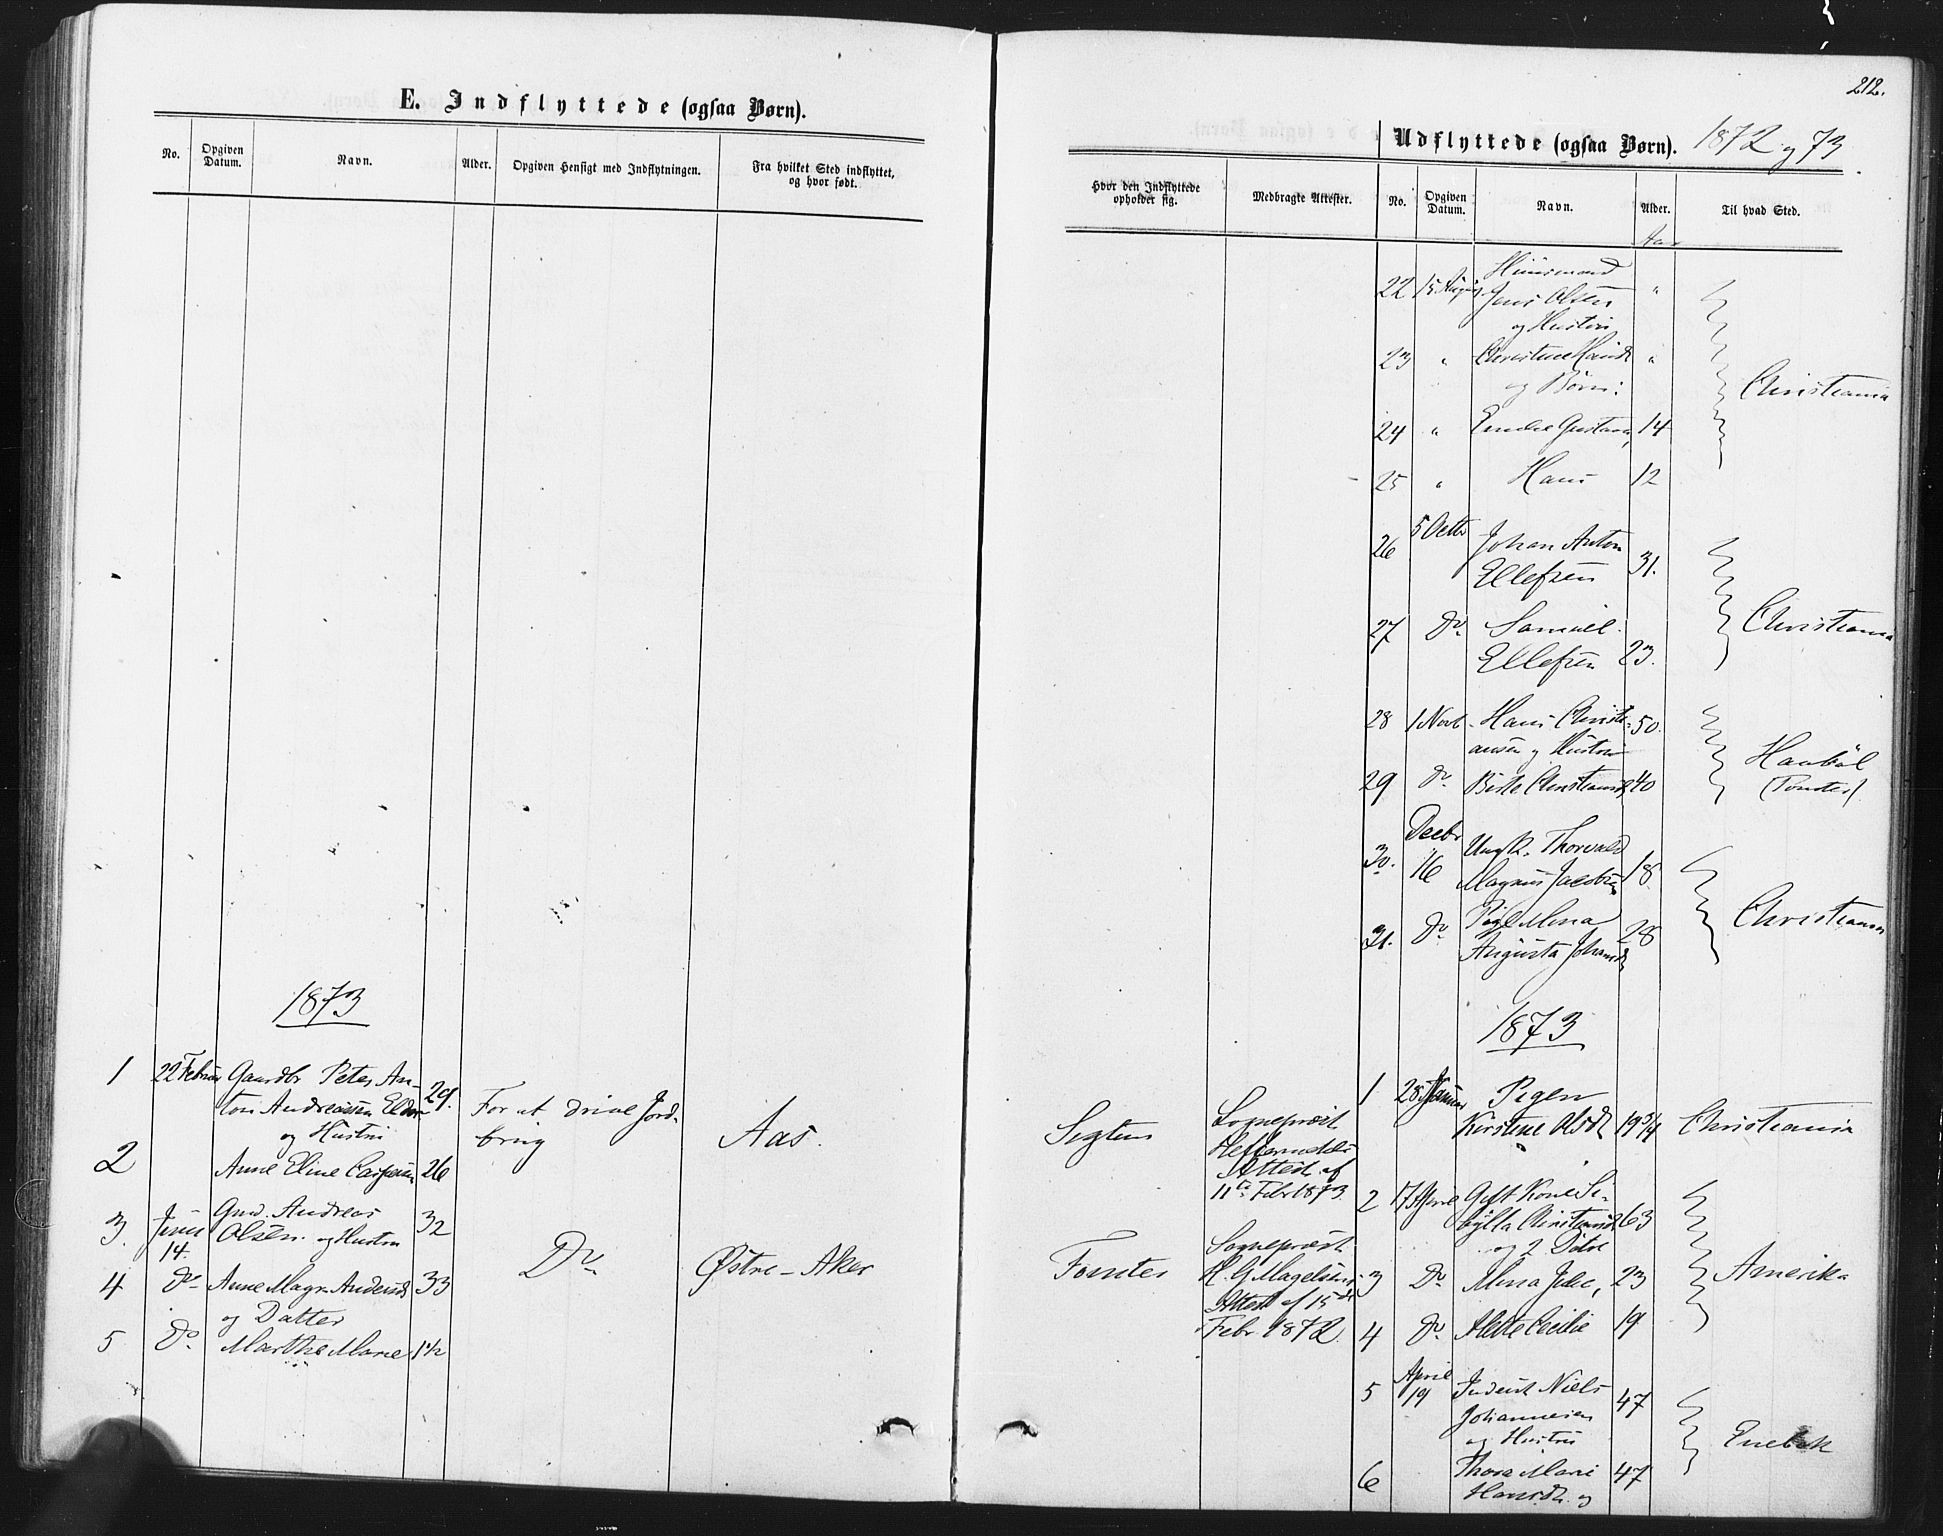 E. Indflyttede (ogsaa Børn).
No.
Opgiven Datum.
Navn.
Alder.
Opgiven Hensigt med Indflytningen.
Fra hvilket Sted indflyttet, og hvor født.
1873
1 22 Februar Gaardbr Peter An-
ton Andreassen 29.
og Hustru
For at drive Jord-
brug
Aas.
2 Anne Eline 26
3. Juni 14. Gmd. Andreas
Olsen og Hustru 32
Do
Østre-Aker
4 Do Anne Magr. Andersd 33
og Datter
5 Do Marthe Marie 1 1/2
212.
Udflyttede (ogsaa Børn). 1872 og 73
Hvor den Indflyttede opholder sig.
Medbragte Attester.
No.
Opgiven Datum.
Navn.
Alder.
Til hvad Sted.
Aar
22 15 August Huusmand
Jens Olsen "
og Hustru
23 " Christine Hansd "
og Børn:
Christiania
24 " Gustava, 14
25 " Hans 12
26 5 Octb Johan Anton
Ellefsen 31.
27 Do Samuel
Ellefsen 23.
Christiania
28 1 Novb Hans Christi- 50.
ansen og Hustru
29 Do Christiansd 40
(Fonster)
30. Decbr 16 Ungk. Thorvald
Magnus Jacobsen 18
31. Do Pige Mina
Augusta Johansd 28
Christiania
1873
1 28 Januar Pigen
Kirstine Olsd 19 3/4 Christiania
Sogneprest
Attest af
11te Febr 1873.
2 17 April Gift Kone Si-
bylla Christiansd 63
og 2 Døtre
3 Do Mina Julie, 23
Amerika
4 Do Cecilie 19
Sogneprest
H. G. Magelsens
Attest af 15de
Febr. 1872.
5 April 19 Inderst Niels
Johannesen 47
og Hustru
Enebak
6 Thora Marie
Hansdtr. og 47